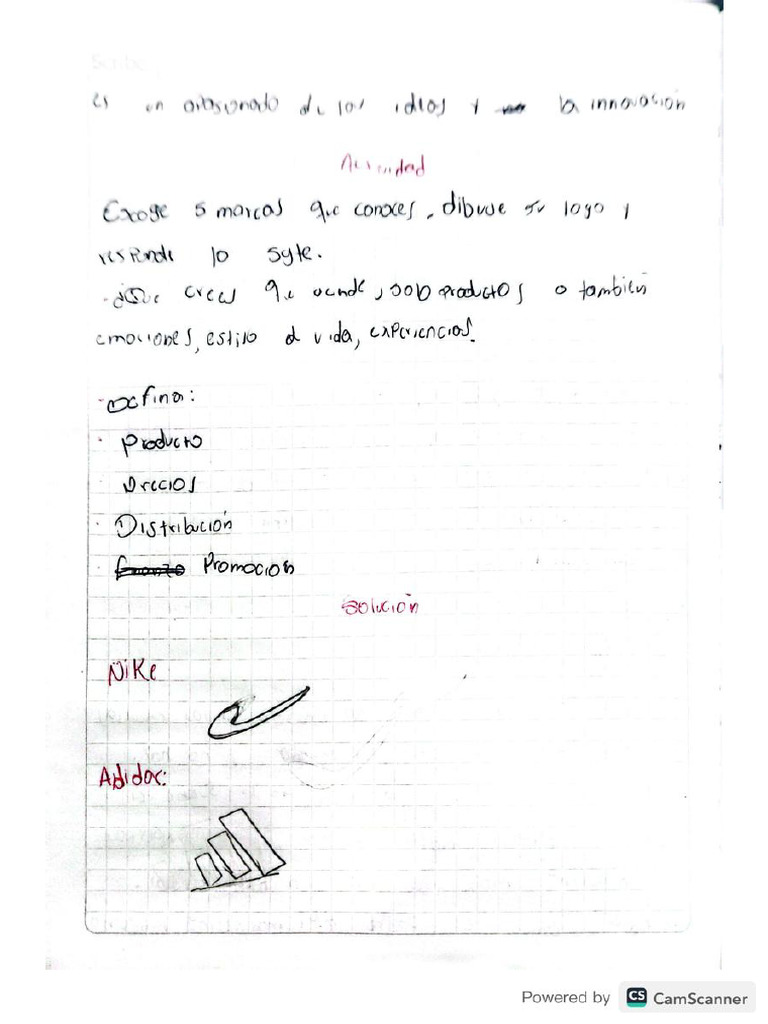 Scribe
es un apasionado de las ideas y la innovación
Actividad
Escoge 5 marcas que conoces, dibuje su logo y
responde lo sgte.
- ¿Que crees que vende, solo productos o también
emociones, estilo d vida, experiencias.
- Defina:
· Producto
Precios
· Distribución
· Promoción
Solución
Nike
Adidas:
Powered by CS CamScanner